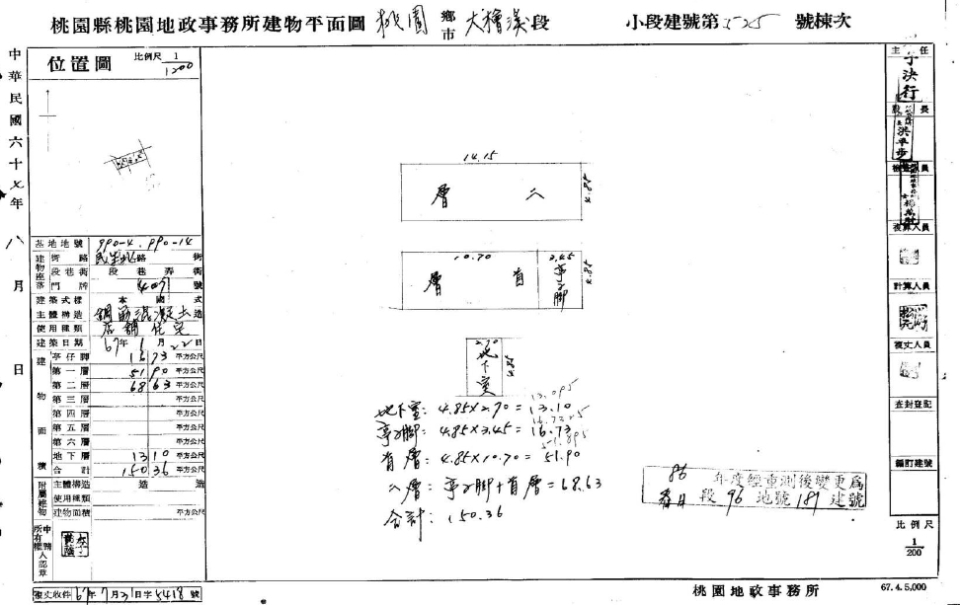 桃園縣桃園地政事務所建物平面圖 桃園 鄉市 大檜溪段 小段建號第525號棟次
中華民國六十七年八月 日
位置圖 比例尺 1/1200
基地地號 990-4.990-14
建物座落
街路 民生北路 街
段巷街 段巷弄 街
門牌 號
建築式樣 本國式
主體構造 鋼筋混凝土造
使用種類 店鋪住宅
建築日期 67年1月22日
建物面積
亭仔腳 16 73 平方公尺
第一層 51 90 平方公尺
第二層 68 63 平方公尺
第三層 平方公尺
第四層 平方公尺
第五層 平方公尺
第六層 平方公尺
地下層 13 10 平方公尺
合計 150 36 平方公尺
附屬建物
主體構造 造
使用種類
建物面積 平方公尺
申請人所有權人認章
複丈收件 67年7月21日字5418號
14.15
二層
4.85
10.70
3.45
首層
亭子腳
4.85
2.70
地下室
4.85
13.095
地下室: 4.85×2.70=13.10
16.7325
亭子腳: 4.85×3.45=16.73
51.895
首層: 4.85×10.70=51.90
二層: 亭子腳+首層=68.63
合計: 150.36
86年度經重測後變更為
春日段96地號187建號
主任
股長
檢查員
複算人員
計算人員
複丈人員
查封登記
編訂建號
比例尺
1/200
桃園地政事務所
67.4.5,000